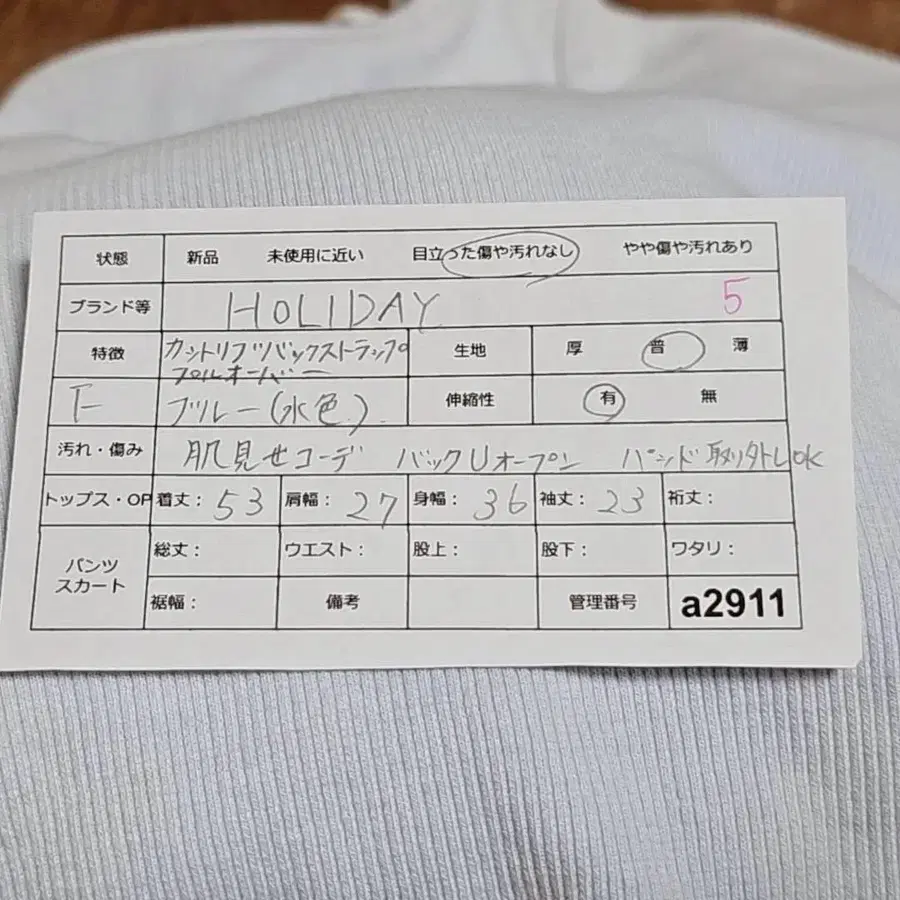 状態 新品 未使用に近い 目立った傷や汚れなし やや傷や汚れあり
ブランド等 HOLIDAY 5
特徴 カットリブバックストラップ 生地 厚 普 薄
プルオーバー
F ブルー(水色) 伸縮性 有 無
汚れ・傷み 肌見せコーデ バックUオープン バンド取り外しok
トップス・OP 着丈: 53 肩幅: 27 身幅: 36 袖丈: 23 裄丈:
パンツ 総丈: ウエスト: 股上: 股下: ワタリ:
スカート
裾幅: 備考 管理番号 a2911